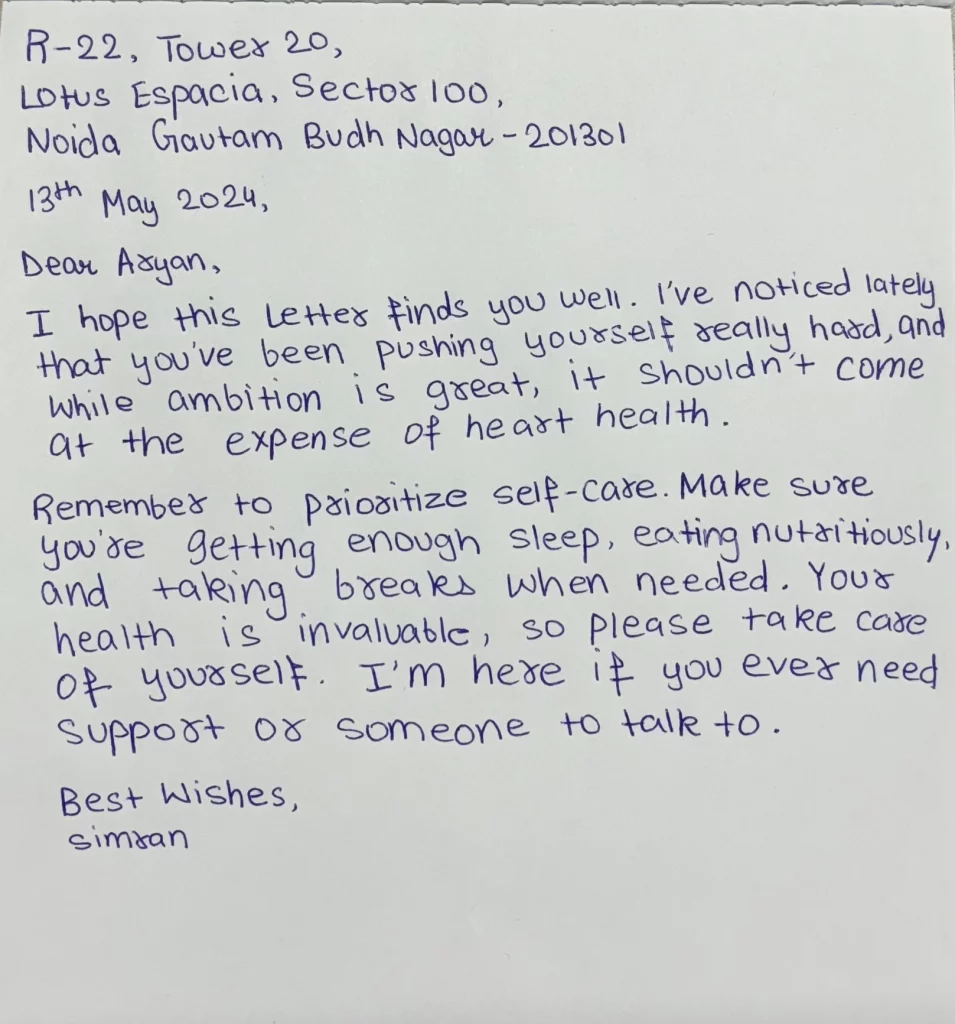 R-22, Tower 20,
Lotus Espacia, Sector 100,
Noida Gautam Budh Nagar - 201301
13th May 2024,
Dear Aryan,
I hope this letter finds you well. I've noticed lately
that you've been pushing yourself really hard, and
while ambition is great, it shouldn't come
at the expense of heart health.
Remember to prioritize self-care. Make sure
you're getting enough sleep, eating nutritiously,
and taking breaks when needed. Your
health is invaluable, so please take care
of yourself. I'm here if you ever need
support or someone to talk to.
Best Wishes,
Simran